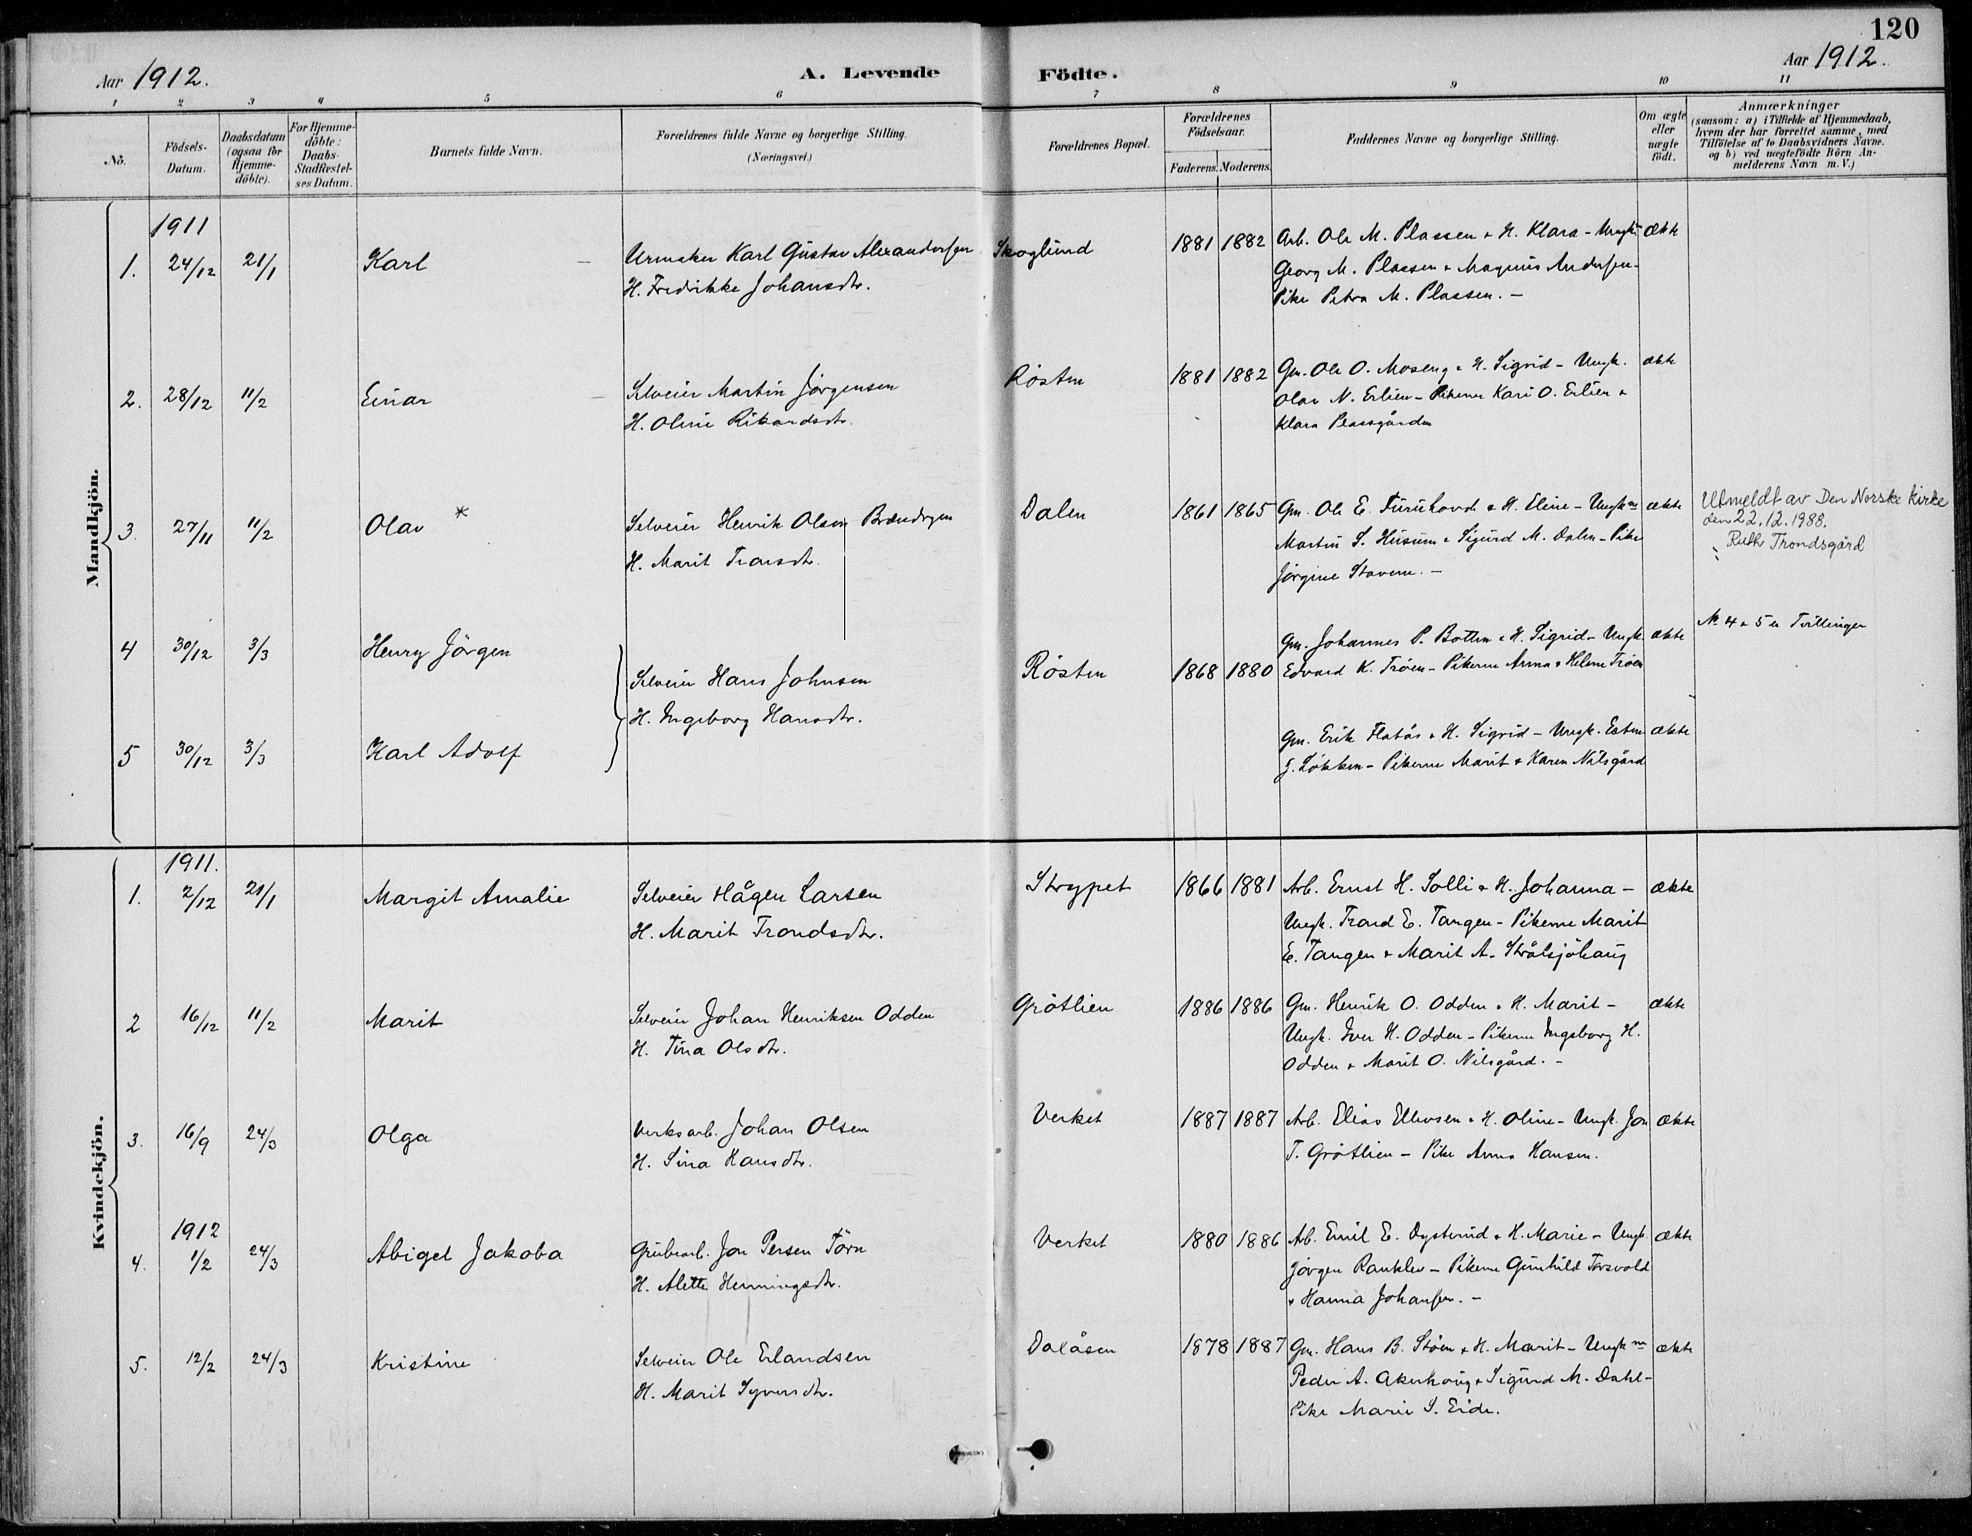 120
Aar 1912.
A. Levende
Födte.
Aar 1912.
1 2 3 4 5 6 7 8 9 10 11
No.
Födsels-
Datum.
Daabsdatum
(ogsaa for
Hjemme-
döbte).
For Hjemme-
döbte:
Daabs-
Stadfæstel-
ses Datum.
Barnets fulde Navn.
Forældrenes fulde Navne og borgerlige Stilling.
(Næringsvei.)
Forældrenes Bopæl.
Forældrenes
Födselsaar.
Faderens. Moderens.
Faddernes Navne og borgerlige Stilling.
Om ægte
eller
uægte
födt.
Anmærkninger
(saasom: a) i Tilfælde af Hjemmedaab,
hvem der har forrettet samme, med
Tilföielse af to Daabsvidners Navne.
og b) ved uægtefödte Börn An-
melderens Navn m. V.)
Mandkjön.
1911
1. 24/12 21/1 Karl
Urmaker Karl Gustav Alexandersen
H. Fredrikke Johansdtr.
Skoglund 1881 1882
Arb. Ole M. Plassen & H. Klara - Ungk. ækte
Georg M. Plassen & Magnus Andersen -
Pike Petra M. Plassen. -
2. 28/12 11/2 Einar
Selveier Martin Jörgensen
H. Oline Rikardsdtr.
Rösten 1881 1882
Gm. Ole O. Moseng & H. Sigrid - Ungk. ækte
Olav N. Erlien - Pikerne Kari O. Erlien &
Klara Plassgården
3. 27/11 11/2 Olav *
Selveier Henrik Olsen Brændvegen
H. Marit Transdtr.
Dalen 1861 1865
Gm. Ole E. Furuhovde & H. Eline - Ungkne ækte
Martin S. Husum & Sigurd M. Dalen - Pike
Jörgine Stavern. -
Utmeldt av Den Norske kirke
den 22.12.1988.
Ruth Trondsgård
4 30/12 3/3 Henry Jörgen
Selveier Hans Johnsen
H. Ingeborg Hansdtr.
Rösten 1868 1880
Gm. Johannes P. Botten & H. Sigrid - Ungk. ækte
Edvard K. Tröen - Pikerne Anna & Helene Tröen
No 4 & 5 er Tvillinger
5 30/12 3/3 Karl Adolf
Gm. Erik Flatås & H. Sigrid - Ungk. Esten ækte
J. Lökken - Pikerne Marit & Karen Nilsgård
Kvindekjön.
1911.
1. 2/12 21/1 Margit Amalie
Selveier Hågen Larsen
H. Marit Trondsdtr.
Strypet 1866 1881
Arb. Ernst H. Solli & H. Johanna - ækte
Ungk. Trond E. Tangen - Pikerne Marit
E. Tangen & Marit A. Strålsjöhaug
2 16/12 11/2 Marit
Selveier Johan Henriksen Odden
H. Tina Olsdtr.
Grötlien 1886 1886
Gm. Henrik O. Odden & H. Marit - ækte
Ungk. Iver H. Odden - Pikerne Ingeborg H.
Odden & Marit O. Nilsgård. -
3. 16/9 24/3 Olga
Verksarb. Johan Olsen
H. Sina Hansdtr.
Verket 1887 1887
Arb. Elias Ellevsen & H. Oline - Ungk. Jon ækte
T. Grötlien - Pike Anna Hansen.
1912
4. 1/2 24/3 Abigel Jakoba
Grubearb. Jon Persen Törn
H. Alette Henningsdtr.
Verket 1880 1886
Arb. Emil E. Oysterud & H. Marie - Ungk. ækte
Jörgen Ranklev - Pikerne Gunhild Torsvold
& Hanna Johansen. -
5. 12/2 24/3 Kristine
Selveier Ole Erlandsen
H. Marit Syversdtr.
Dalåsen 1878 1887
Gm. Hans B. Stöen & H. Marit - Ungkne ækte
Peder A. Akerhaug & Sigurd M. Dahl -
Pike Marie S. Eide.